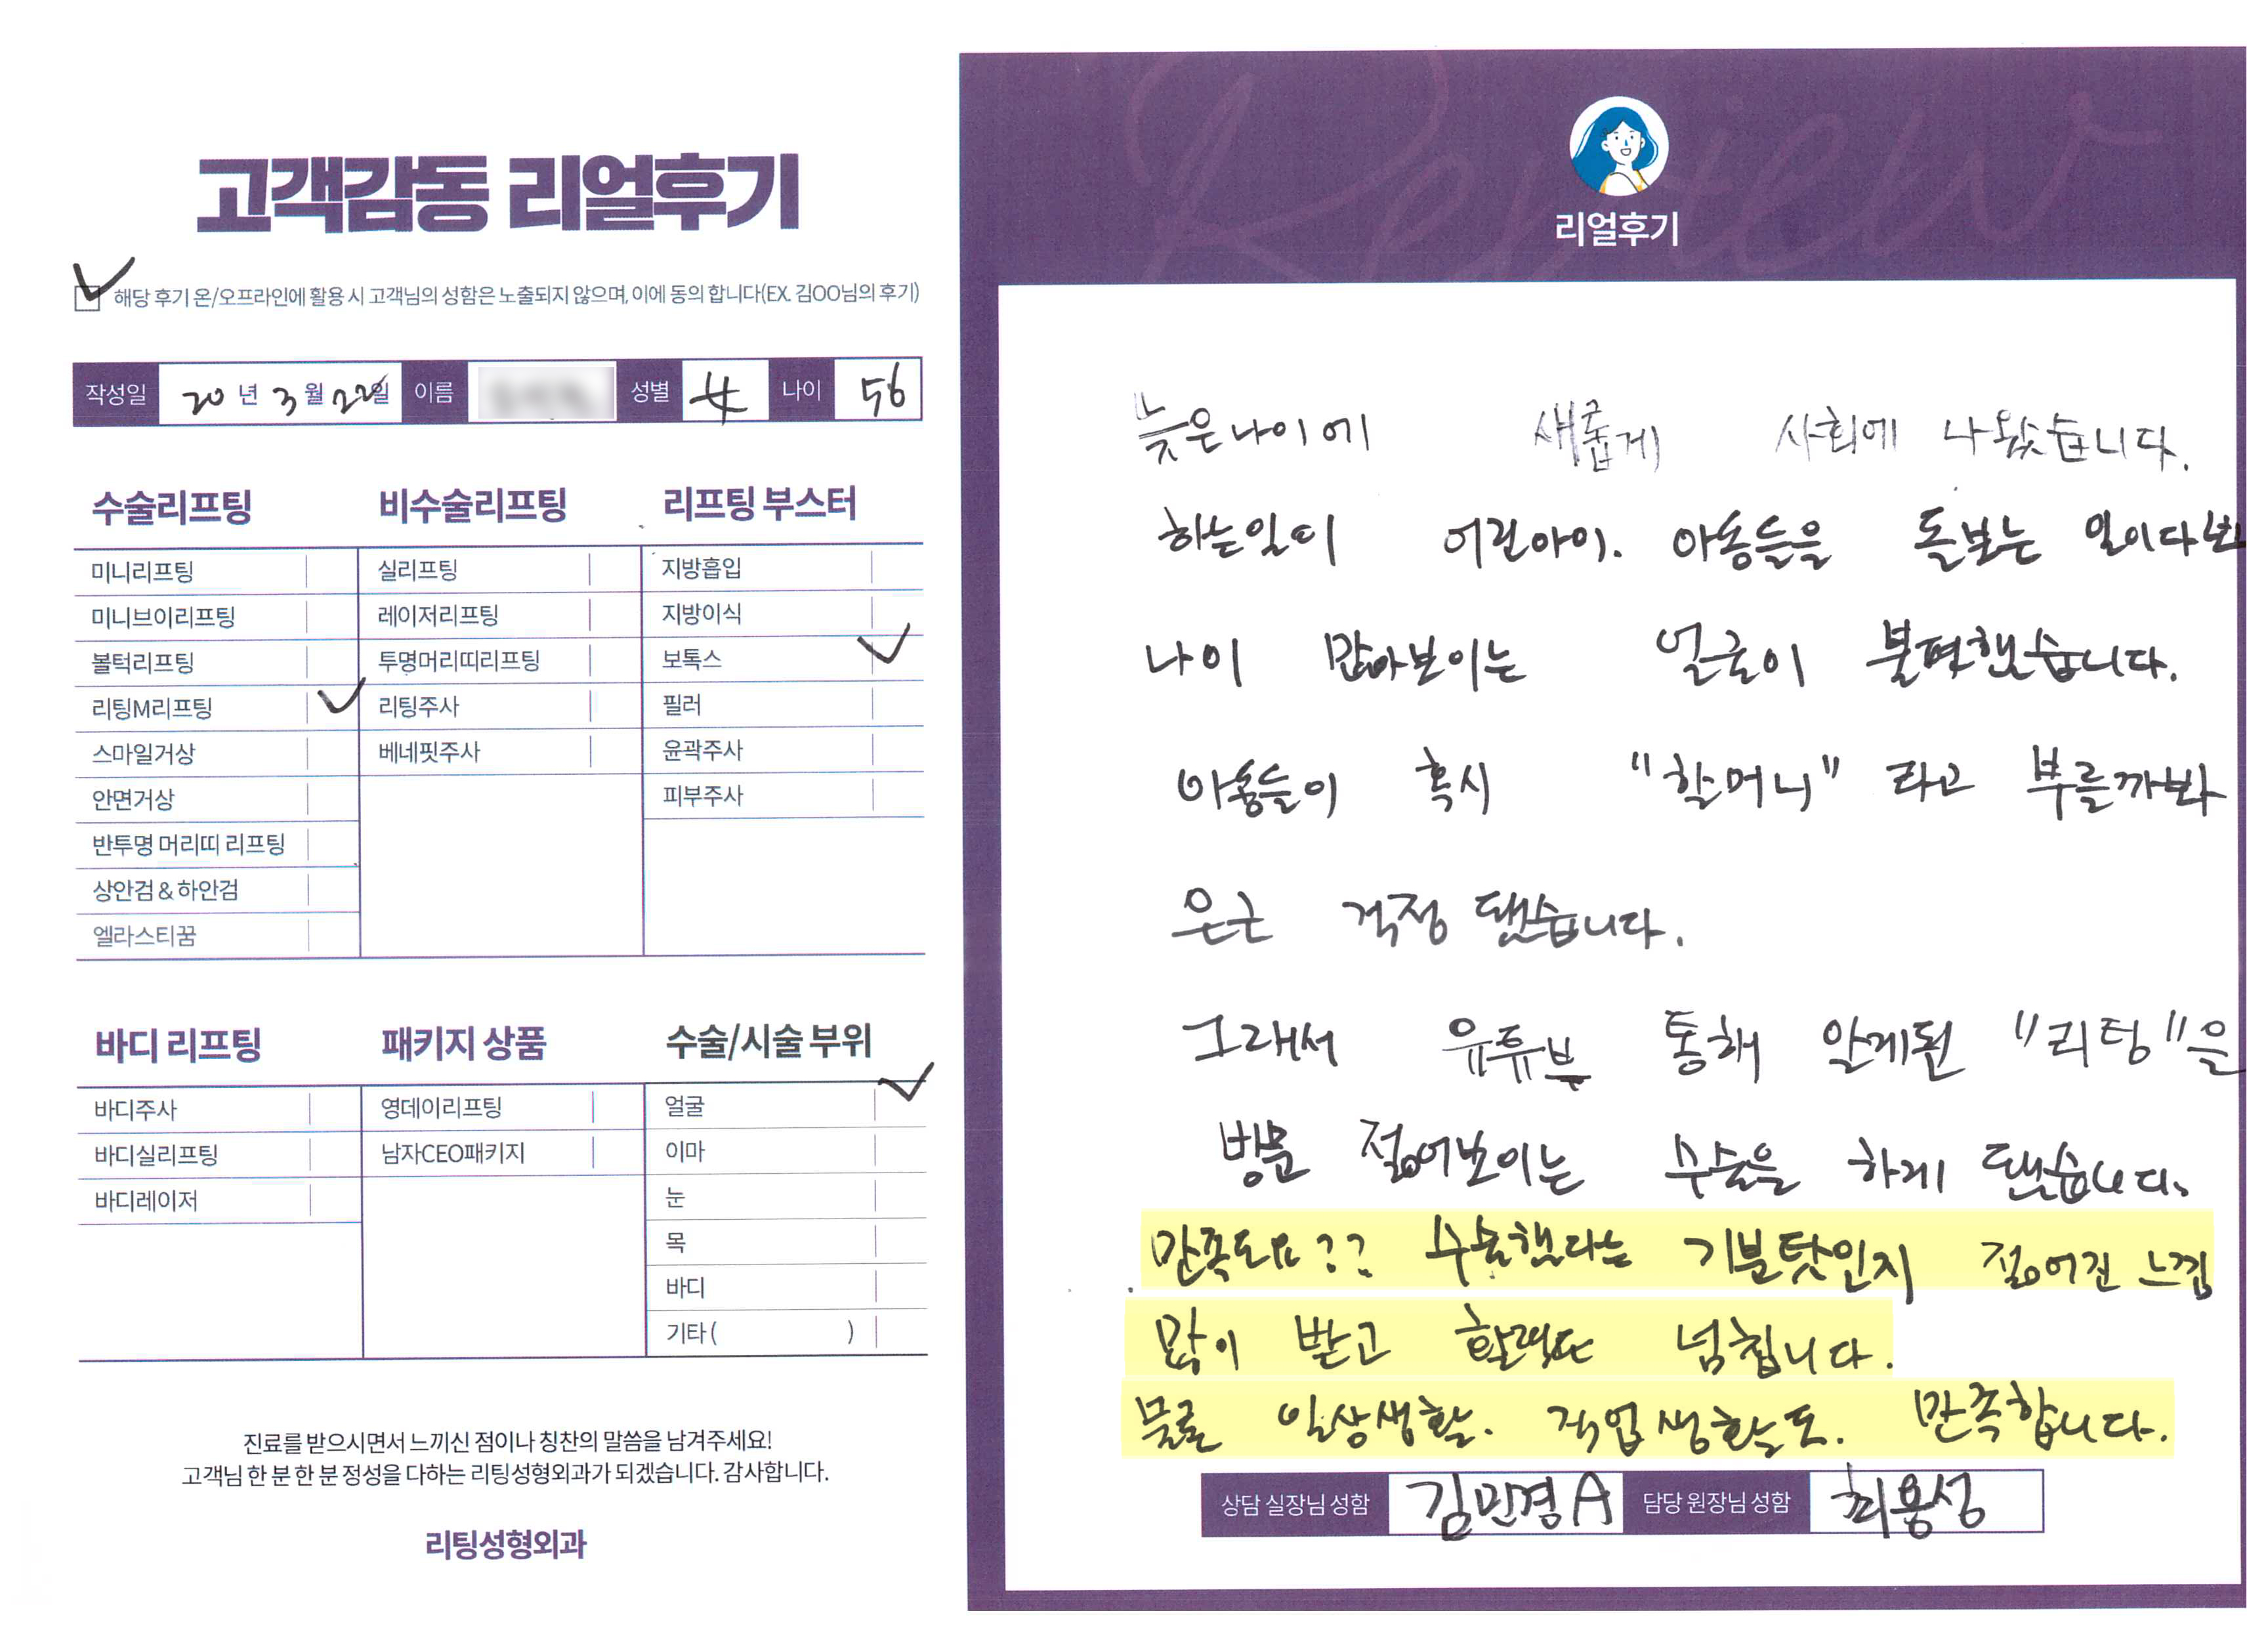 고객감동 리얼후기
해당 후기 온/오프라인에 활용 시 고객님의 성함은 노출되지 않으며, 이에 동의 합니다(EX. 김OO님의 후기)
작성일 20년 3월 22일 이름 성별 女 나이 56
수술리프팅
미니리프팅
미니브이리프팅
볼턱리프팅
리팅M리프팅
스마일거상
안면거상
반투명 머리띠 리프팅
상안검 & 하안검
엘라스티꿈
비수술리프팅
실리프팅
레이저리프팅
투명머리띠리프팅
리팅주사
베네핏주사
리프팅 부스터
지방흡입
지방이식
보톡스
필러
윤곽주사
피부주사
바디 리프팅
바디주사
바디실리프팅
바디레이저
패키지 상품
영데이리프팅
남자CEO패키지
수술/시술 부위
얼굴
이마
눈
목
바디
기타 ( )
진료를 받으시면서 느끼신 점이나 칭찬의 말씀을 남겨주세요!
고객님 한 분 한 분 정성을 다하는 리팅성형외과가 되겠습니다. 감사합니다.
리팅성형외과
Review
리얼후기
늦은나이에 새롭게 사회에 나왔습니다.
하는일이 어린아이. 아동들을 돌보는 일이다보
나이 많아보이는 얼굴이 불편했습니다.
아동들이 혹시 "할머니" 라고 부를까봐
은근 걱정 됐습니다.
그래서 유튜브 통해 알게된 "리팅"을
방문 젊어보이는 수술을 하게 됐습니다.
만족도요?? 수술했다는 기분탓인지 젊어진 느낌
많이 받고 활력도 넘칩니다.
물론 일상생활. 직업생활도. 만족합니다.
상담 실장님 성함 김민경A 담당 원장님 성함 최용성